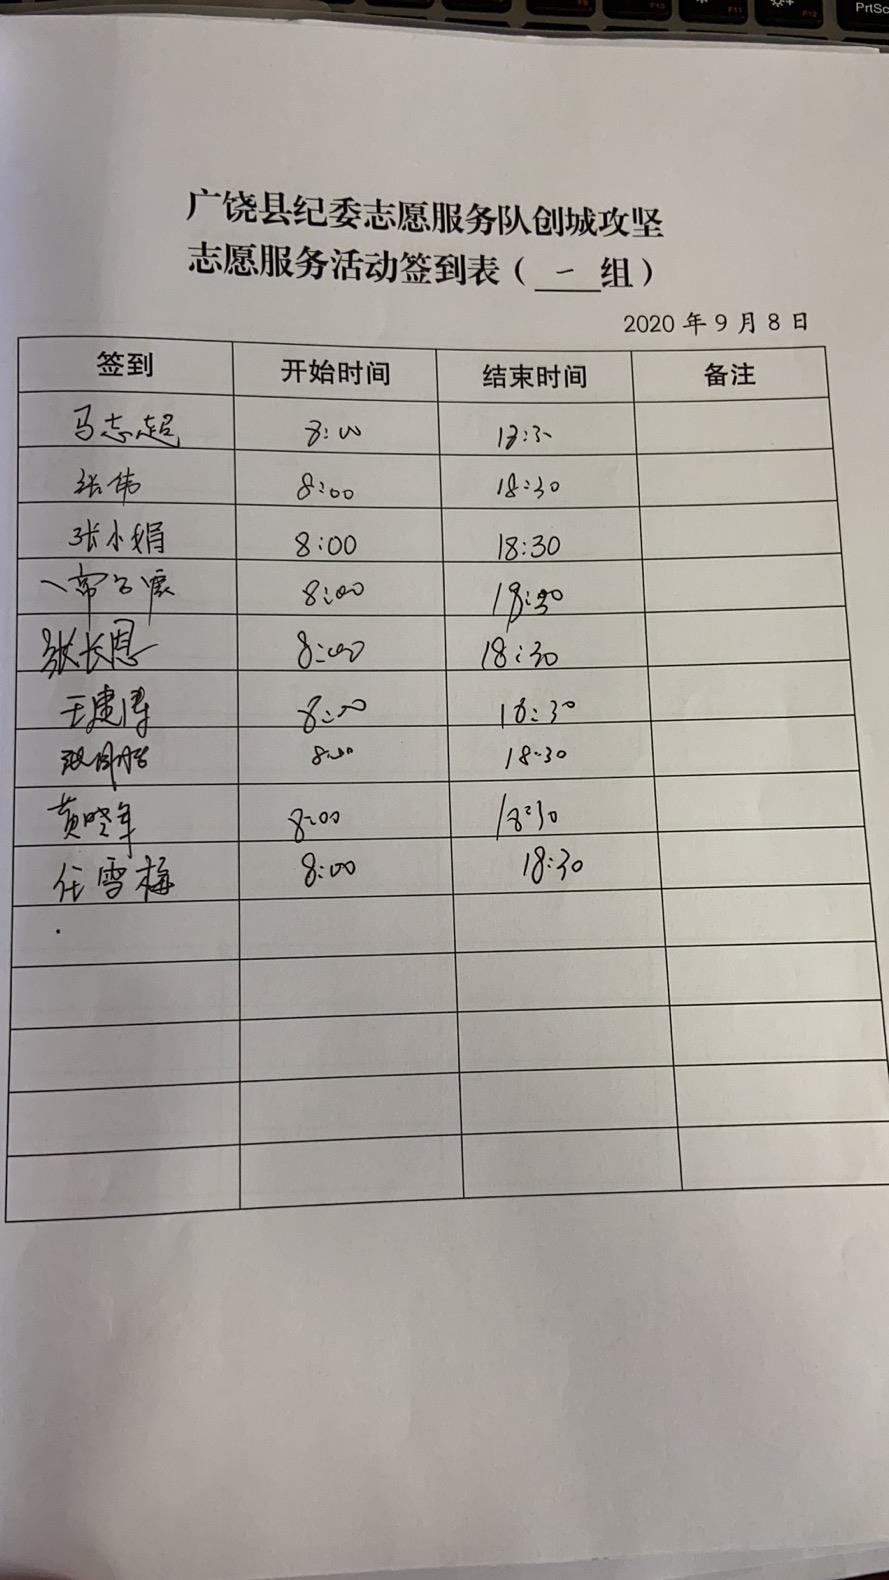 广饶县纪委志愿服务队创城攻坚
志愿服务活动签到表（一组）
2020 年 9 月 8 日
签到 开始时间 结束时间 备注
马志超 8:00 18:30
张伟 8:00 18:30
张小娟 8:00 18:30
8:00 18:30
张长恩 8:00 18:30
王建涛 8:00 18:30
8:00 18:30
黄晓军 8:00 18:30
任雪梅 8:00 18:30
PrtSc